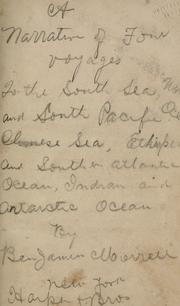 A
Narrative of Four
voyages
To the South Sea,
and South Pacific Oce
Chinese Sea, Ethiop
and Southern Atlantic
Ocean, Indian and
Antarctic Ocean
By
Benjamin Morrell
New York
Harper & Bros